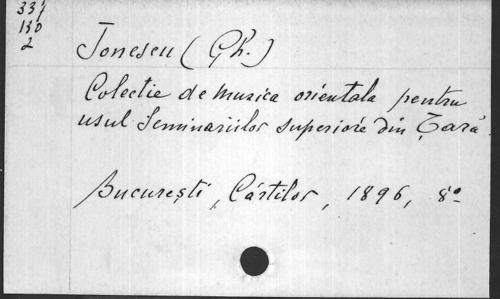 331
130
2
Ionescu (Gh.)
Colectie de musica orientala pentru
usul Seminariilor superiore din Țară.
București, Cărtilor, 1896, 8º